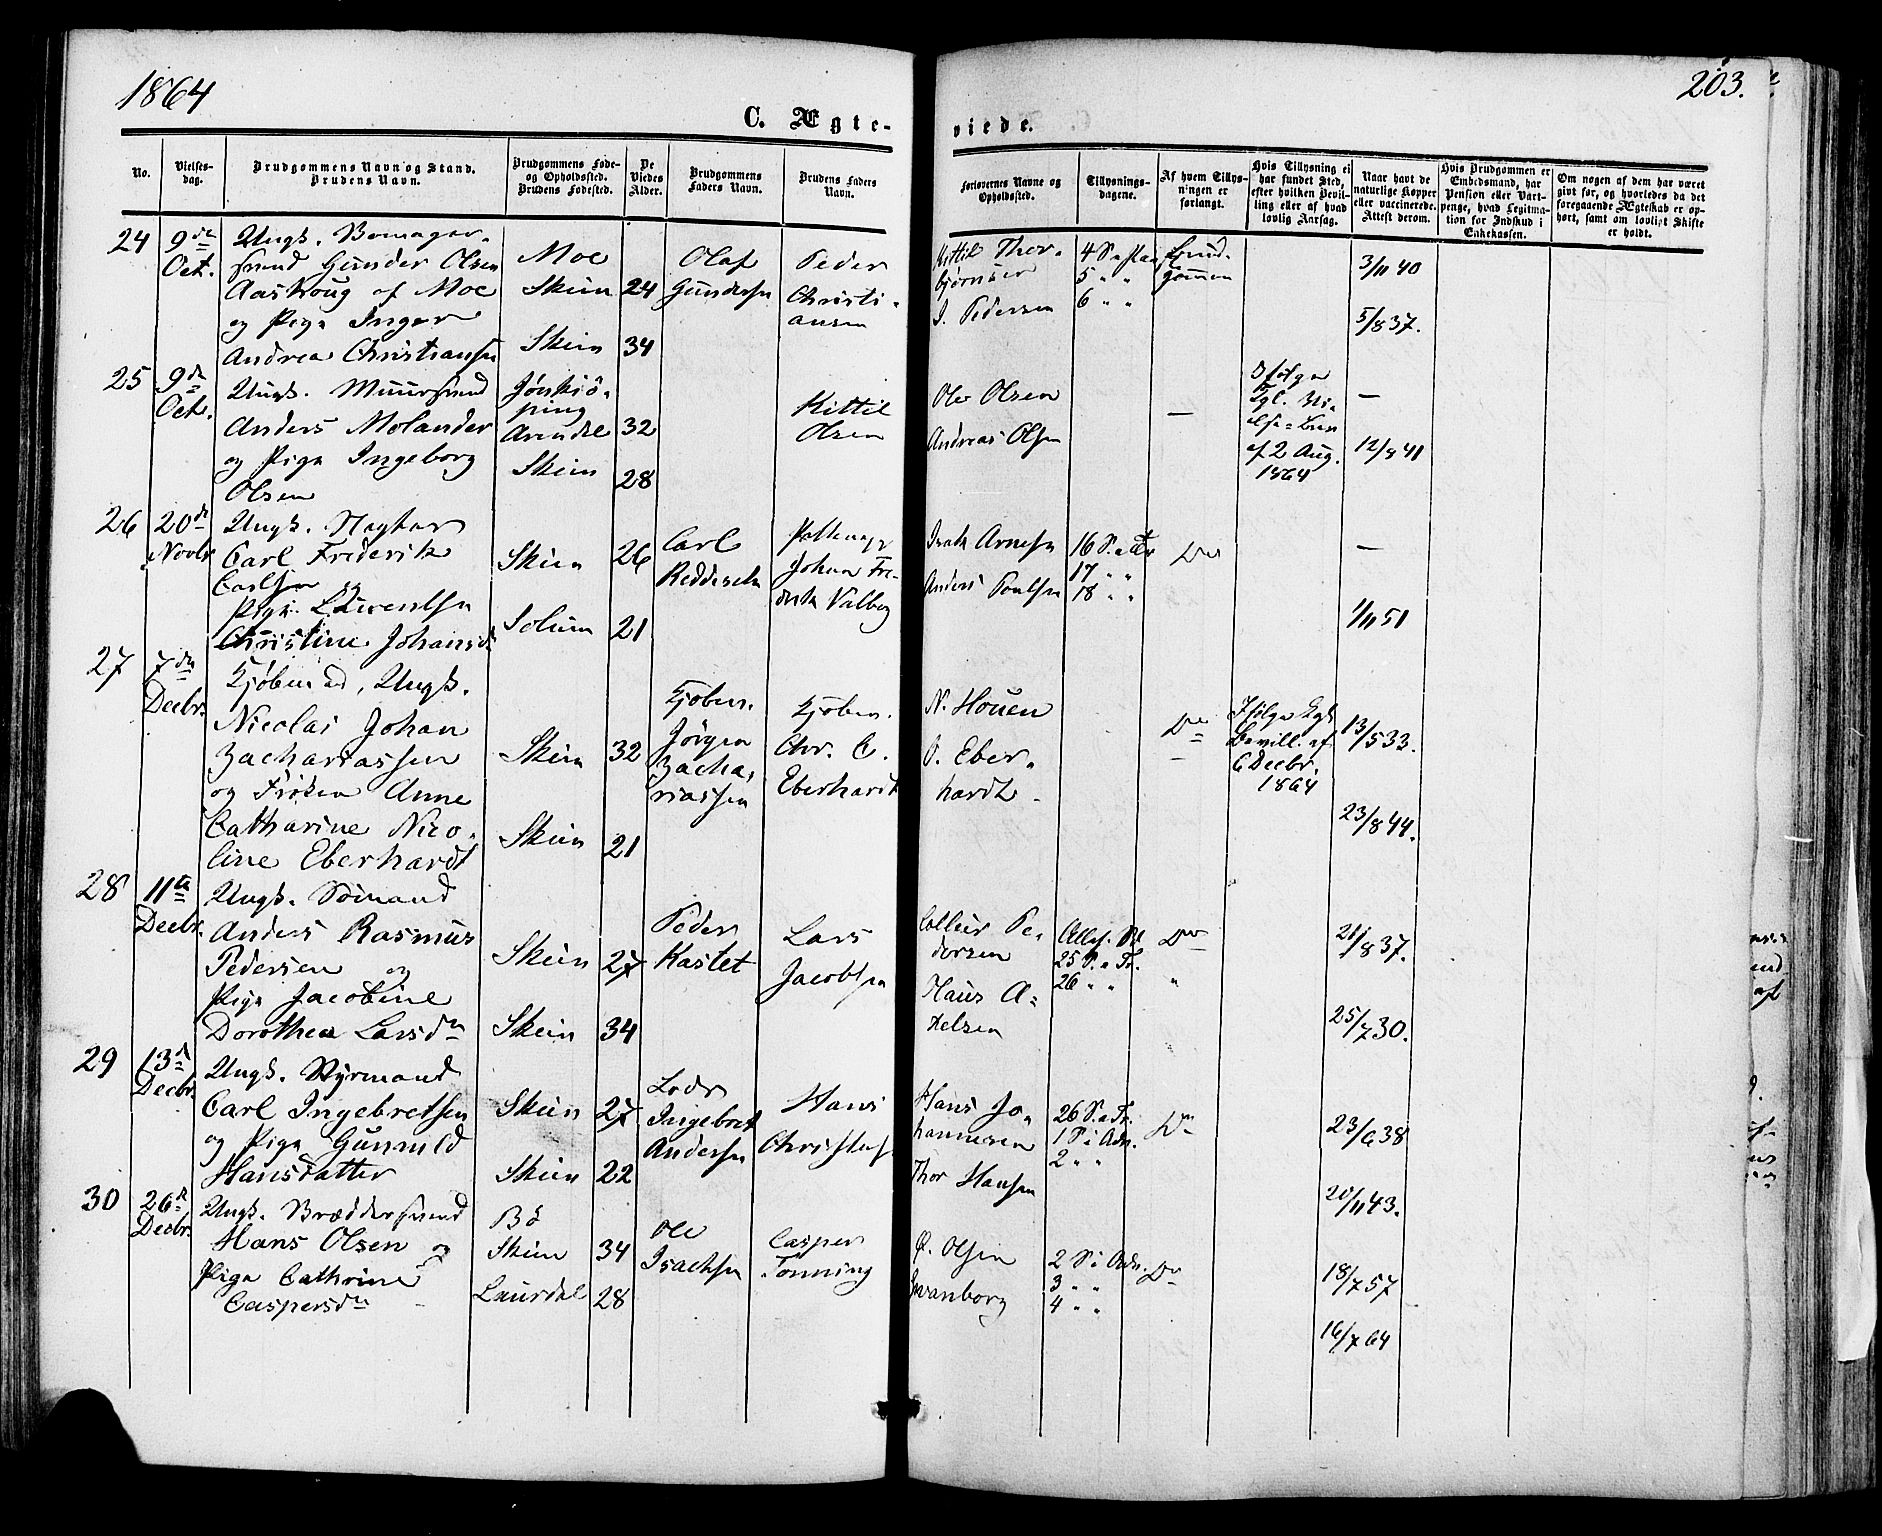 1864
203.
C. Ægte-
viede.
No.
Vielses-
dag.
Brudgommens Navn og Stand.
Brudens Navn.
Brudgommens Føde-
og Opholdssted.
Brudens Fødested.
De
Viedes
Alder.
Brudgommens
Faders Navn.
Brudens Faders
Navn.
Forlovernes Navne og
Opholdssted.
Tillysnings-
dagene.
Af hvem Tillys-
ningen er
forlangt.
Hvis Tillysning ei
har fundet Sted,
efter hvilken Bevil-
ling eller af hvad
lovlig Aarsag.
Naar havt de
naturlige Kopper
eller vaccinerede.
Attest derom.
Hvis Brudgommen er
Embedsmand, har
Pension eller Vart-
penge, hvad Legitima-
tion for Indskud i
Enkekassen.
Om nogen af dem har været
gift før, og hvorledes da det
foregaaende Ægteskab er op-
hørt, samt om lovligt Skifte
er holdt.
24
9de
Oct.
Ungk.
Gunder Olsen
Aaskoug af Moe
og Pige Inger
Andrea Christiansen
Moe
Skien 24
Skien 34
Olaf
Gundersen
Peder
Christi-
ansen
Kittil Thor-
bjørnsen
J. Pedersen
4 S.
5 " "
6 " "
Brud-
gommen
3/11 40
5/8 37.
25
9de
Oct.
Ungk. Muursvend
Anders Molander
og Pige Ingeborg
Olsen
Jønkjö-
ping
Arendal 32
Skien 28
Kittil
Olsen
Ole Olsen
Andreas Olsen
—
Ifølge
Kgl.

af 2 Aug.
1864
—
12/8 41
26
20de
Novbr
Ungk. Slagter
Carl Frederik
Carlsen og
Pige Laurentsen
Christine Johansd
Skien 26
Solum 21
Carl
Johan Fre-
drik Valberg
Isak Arnesen
Anders Poulsen
16 S. e Tr
17 " "
18 " "
Do
—
1/11 51
27
7de
Decbr.
Kjøbmand, Ungk.
Nicolai Johan
Zachariassen
og Frøken Anne
Catharine Nico-
line Eberhardt
Skien 32
Skien 21
Kjøbm.
Jørgen
Zacha-
riassen
Kjøbm.
Chr. C.
Eberhardt
N. Houen
Eber-
hardt
Do
—
Ifølge Kgl
Bevill. af
6 Decbr.
1864
13/5 33.
23/8 44.
28
11te
Decbr.
Ungk. Sømand
Anders Rasmus
Pedersen og
Pige Jacobine
Dorothea Larsdr
Skien 27
Skien 34
Peder
Kastet
Lars
Jacobsen
Pe-
dersen
Hans A-
xelsen
25 S. e Tr.
26 " "
Do
"
21/8 37.
25/7 30.
29
13de
Decbr.
Ungk. Styrmand
Carl Ingebretsen
og Pige Gunnild
Hansdatter
Skien 27
Skien 22
Lods
Ingebret
Andersen
Hans
Christens
Hans Jo-
hannesen
Thor Hansen
26 S. e Tr.
1 S. i Adv.
2 " "
Do
23/6 38
20/11 43.
30
26de
Decbr.
Ungk. Bræddersvend
Hans Olsen og
Pige Cathrine
Caspersdr
Bö
Skien 34
Laurdal 28
Ole
Isachsen
Casper
Tonning
O. Olsen
Svanborg
2 S. i Adv.
3 " "
4 " "
Do
18/7 57
16/7 64